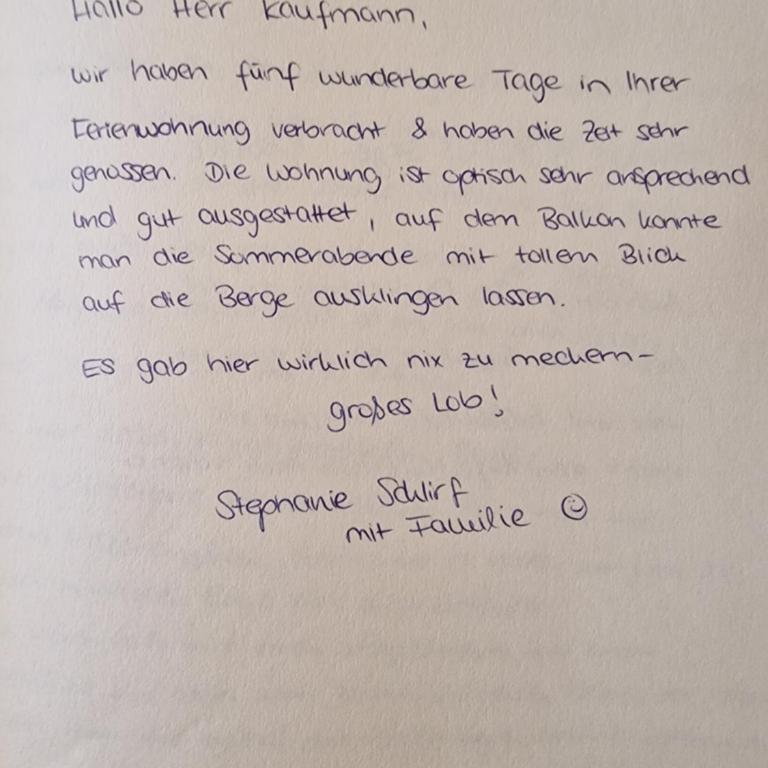 Hallo Herr Kaufmann,
wir haben fünf wunderbare Tage in Ihrer
Ferienwohnung verbracht & haben die Zeit sehr
genossen. Die Wohnung ist optisch sehr ansprechend
und gut ausgestattet, auf dem Balkon konnte
man die Sommerabende mit tollem Blick
auf die Berge ausklingen lassen.
Es gab hier wirklich nix zu meckern-
großes Lob!
Stephanie Schlirf
mit Familie ☺